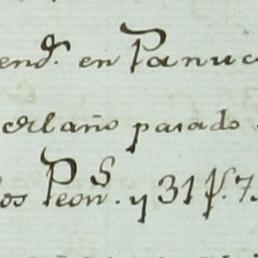 end.ᵒ en Panuc
el año pasado
los Peon.ˢ y 31 p.ˢ 7